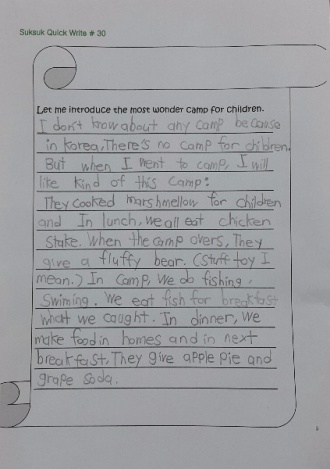 Suksuk Quick Write # 30
Let me introduce the most wonder camp for children.
I don't know about any camp because
in korea, There's no camp for children.
But when I went to camp, I will
like kind of this camp:
They cooked marshmellow for children
and In lunch, we all eat chicken
Stake. When the camp overs, They
give a fluffy bear. (Stuff toy I
mean.) In camp, we do fishing,
Swiming. We eat fish for breakfast
what we caught. In dinner, we
make food in homes and in next
breakfast, They give apple pie and
grape soda.